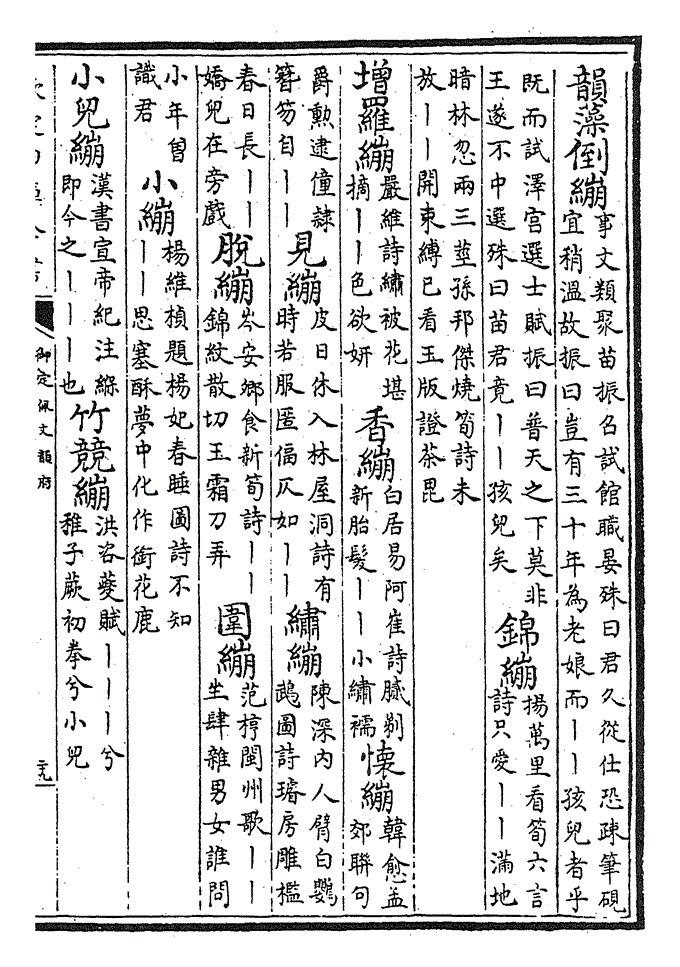 韻藻倒繃事文類聚苗振召試館職晏殊曰君久從仕恐疎筆硯
宜稍溫故振曰豈有三十年為老娘而丨丨孩兒者乎
既而試澤宮選士賦振曰普天之下莫非
王遂不中選殊曰苗君竟丨丨孩兒矣
錦繃揚萬里看筍六言
詩只愛丨丨滿地
暗林忽兩三莖孫邦傑燒筍詩未
放丨丨開東縛已看玉版證茶毘
增羅繃嚴維詩繡被花堪
摘丨丨色欲妍
香繃白居易阿崔詩膩剃
新胎髮丨丨小繡襦
懷繃韓愈孟
郊聯句
爵勲逮僮隷
簪笏自丨丨
見繃皮日休入林屋洞詩有
時若服匿偪仄如丨丨
繡繃陳深内人臂白鸚
鵡圖詩璿房雕檻
春日長丨丨
嬌兒在旁戲
脫繃岑安鄉食新筍詩丨丨
錦紋散切玉霜刀弄
圍繃范梈閩州歌丨丨
坐肆雜男女誰問
小年曽
識君
小繃楊維楨題楊妃春睡圖詩不知
丨丨思塞酥夢中化作銜花鹿
小兒繃漢書宣帝紀注緥
即今之丨丨丨也
竹競繃洪咨夔賦丨丨丨兮
稚子蕨初拳兮小兒
御定佩文韻府